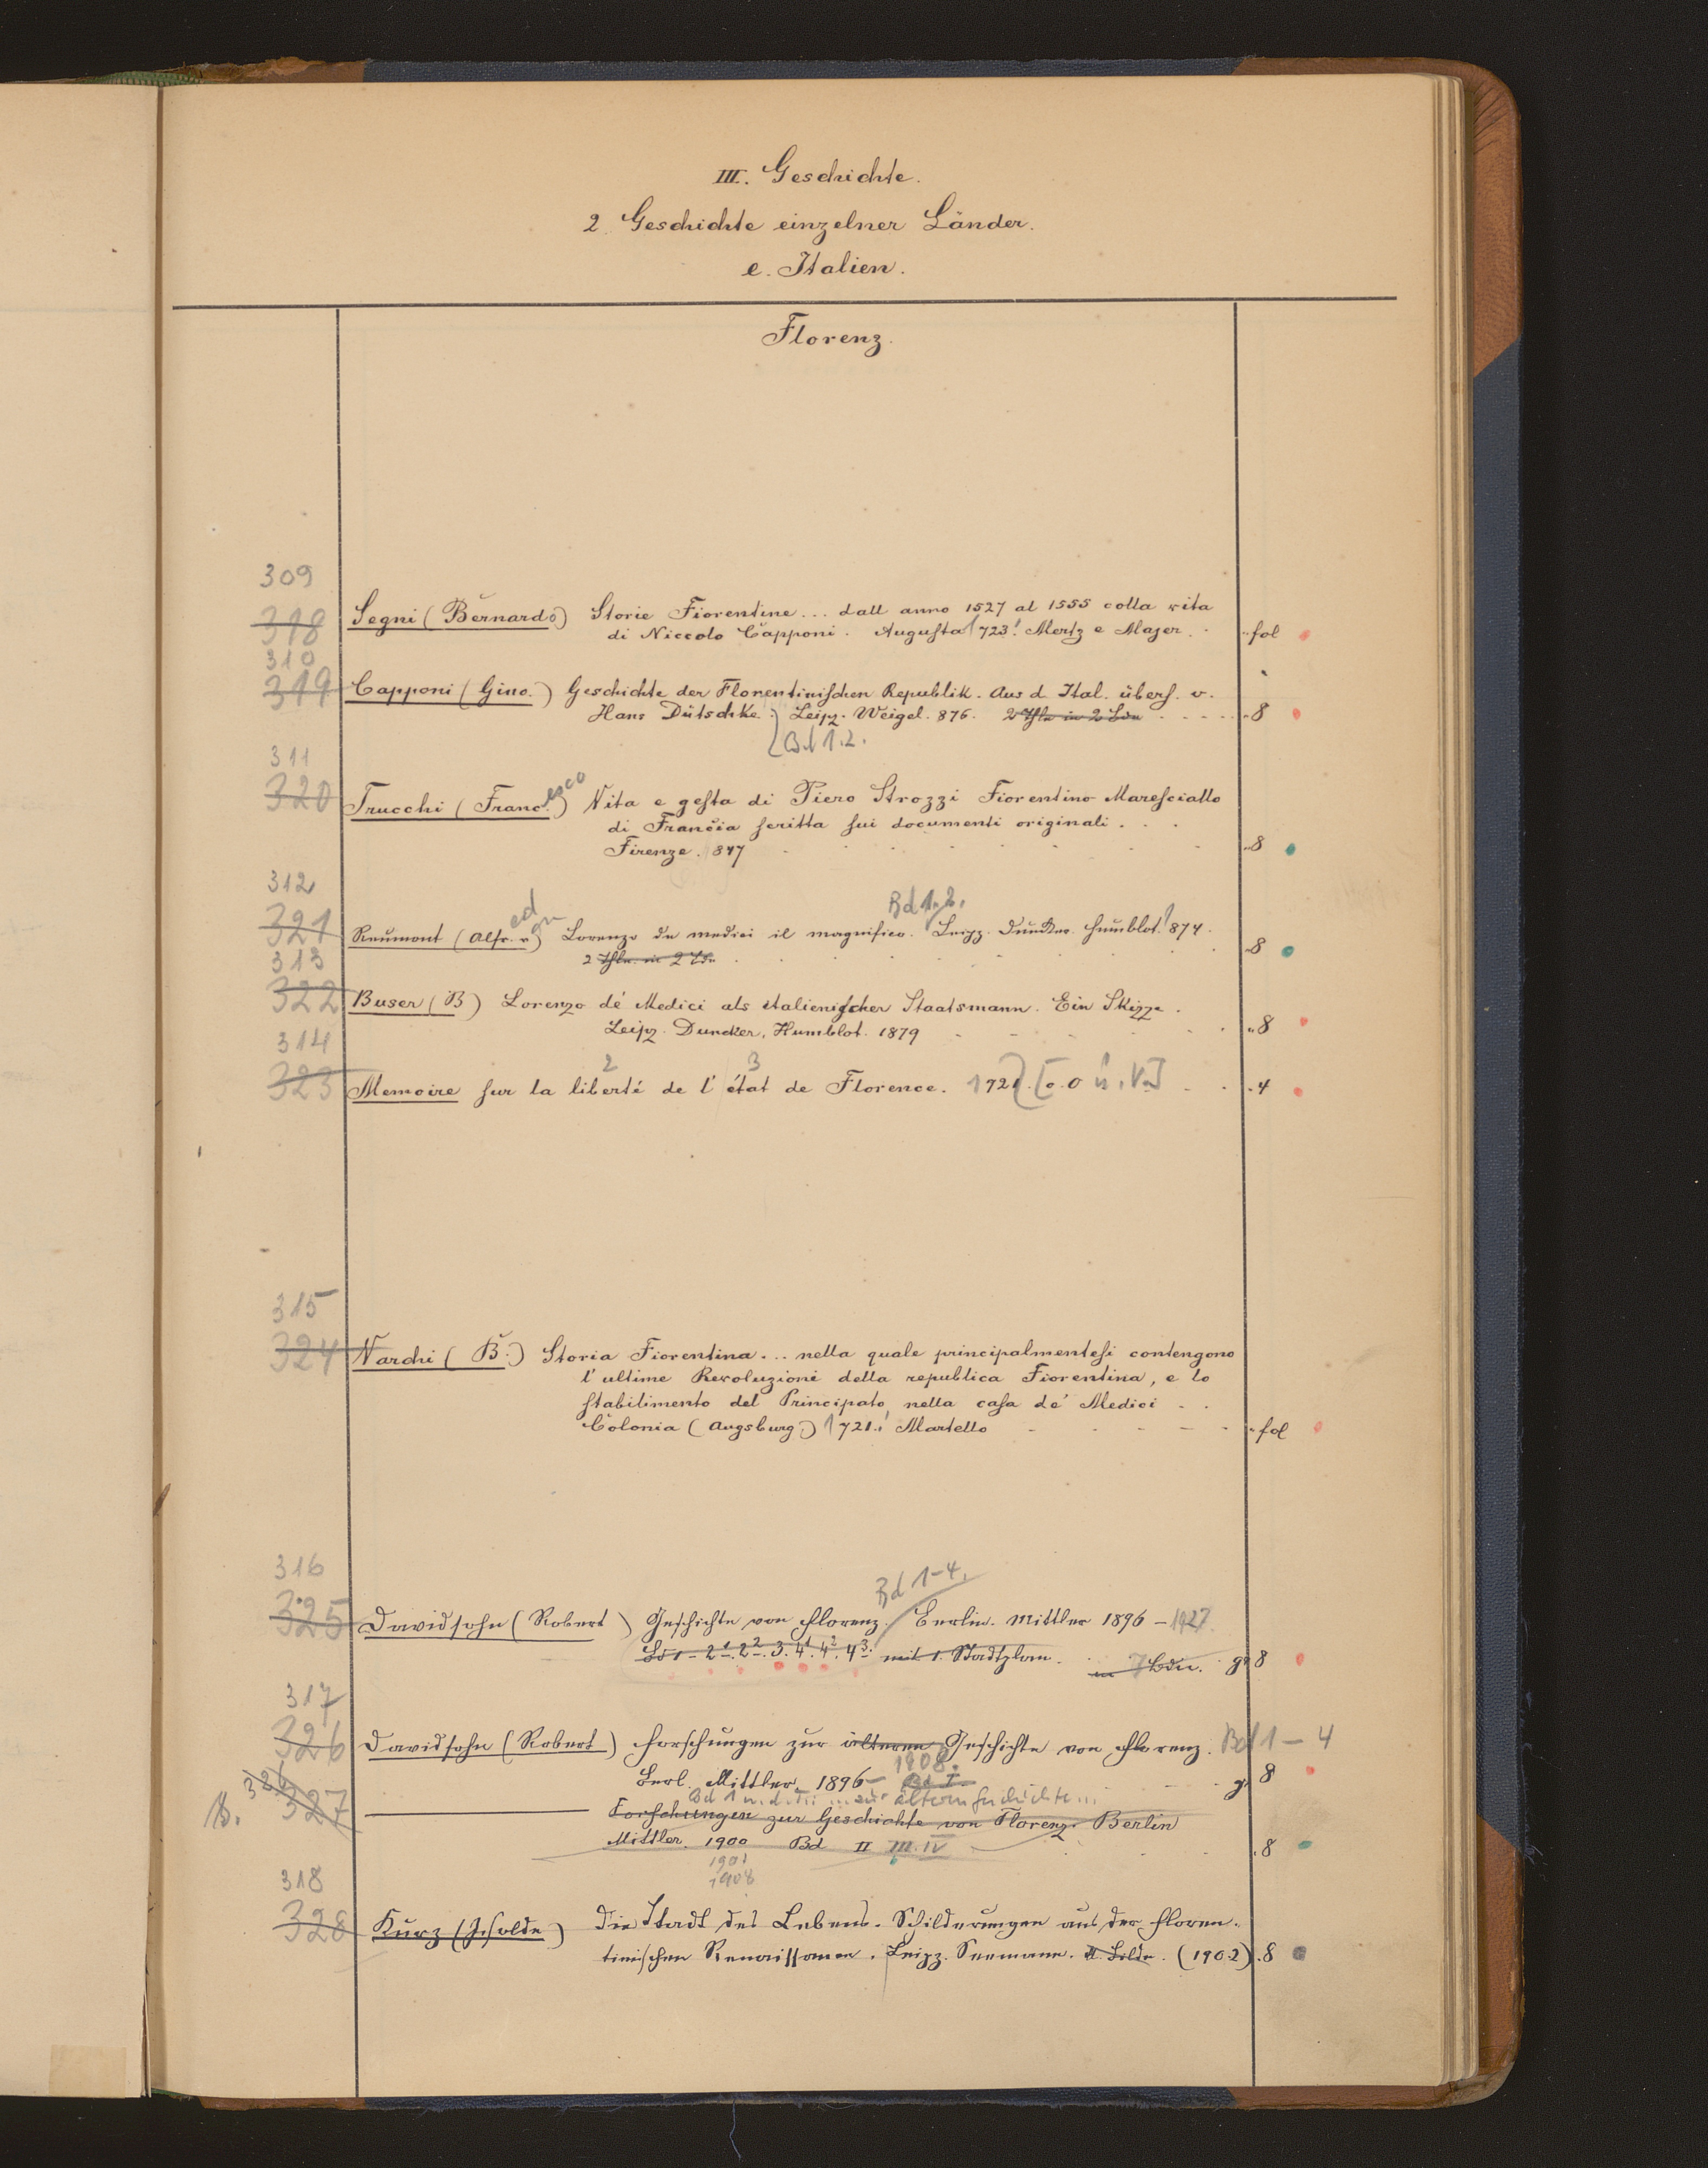 III. Geschichte.
2. Geschichte einzelner Länder.
e. Italien.
Florenz.
309
318 Segni (Bernardo) Storie Fiorentine... dall anno 1527 al 1555 colla vita
di Niccolo Capponi. Augusta 1723. Mertz e Majer. fol
310
319 Capponi (Gino.) Geschichte der Florentinischen Republik. Aus d. Ital. übers. v.
Hans Dütschke. Leipz. Weigel. 876. 2 Thle in 2 Bdn 8
Bd 1.2.
311
320 Trucchi (Francesco) Vita e gesta di Piero Strozzi Fiorentino Maresciallo
di Francia scritta sui documenti originali.
Firenze. 847 8
312
Bd 1. 2.
321 Reumont (Alfred v.) Lorenzo de medici il magnifico. Leipz. Duncker. Humblot. 1874.
2 Thle. in 2 Bdn 8
313
322 Buser (B) Lorenzo de' Medici als italienischer Staatsmann. Ein Skizze.
Leipz. Duncker, Humblot. 1879 8
314
2 3
323 Memoire sur la liberté de l'état de Florence. 1721. [o. O. u. V.] 4
315
324 Varchi (B.) Storia Fiorentina... nella quale principalmentesi contengono
l'ultime Revoluzioni della republica Fiorentina, e lo
stabilimento del Principato, nella casa de' Medici
Colonia (Augsburg) 1721. Martello fol
316
Bd 1-4.
325 Davidsohn (Robert) Geschichte von Florenz. Berlin. Mittler 1896-1927.
Bd 1-2¹. 2². 3. 4¹. 4². 4³. mit 1. Stadtplan. in 7 Bdn. gr 8
317
326 Davidsohn (Robert) Forschungen zur älteren Geschichte von Florenz. Bd 1-4
1908.
Berl. Mittler. 1896- Bd I. gr 8
Bd 1 u. d. Ti: ... zur ältern Geschichte...
B. 326 327 Forschungen zur Geschichte von Florenz. Berlin
Mittler. 1900 Bd II III. IV 8
1901
1908
318
328 Kurz (Isolde) Die Stadt des Lebens. Schilderungen aus der floren-
tinischen Renaissance. Leipz. Seemann. (1902) 8